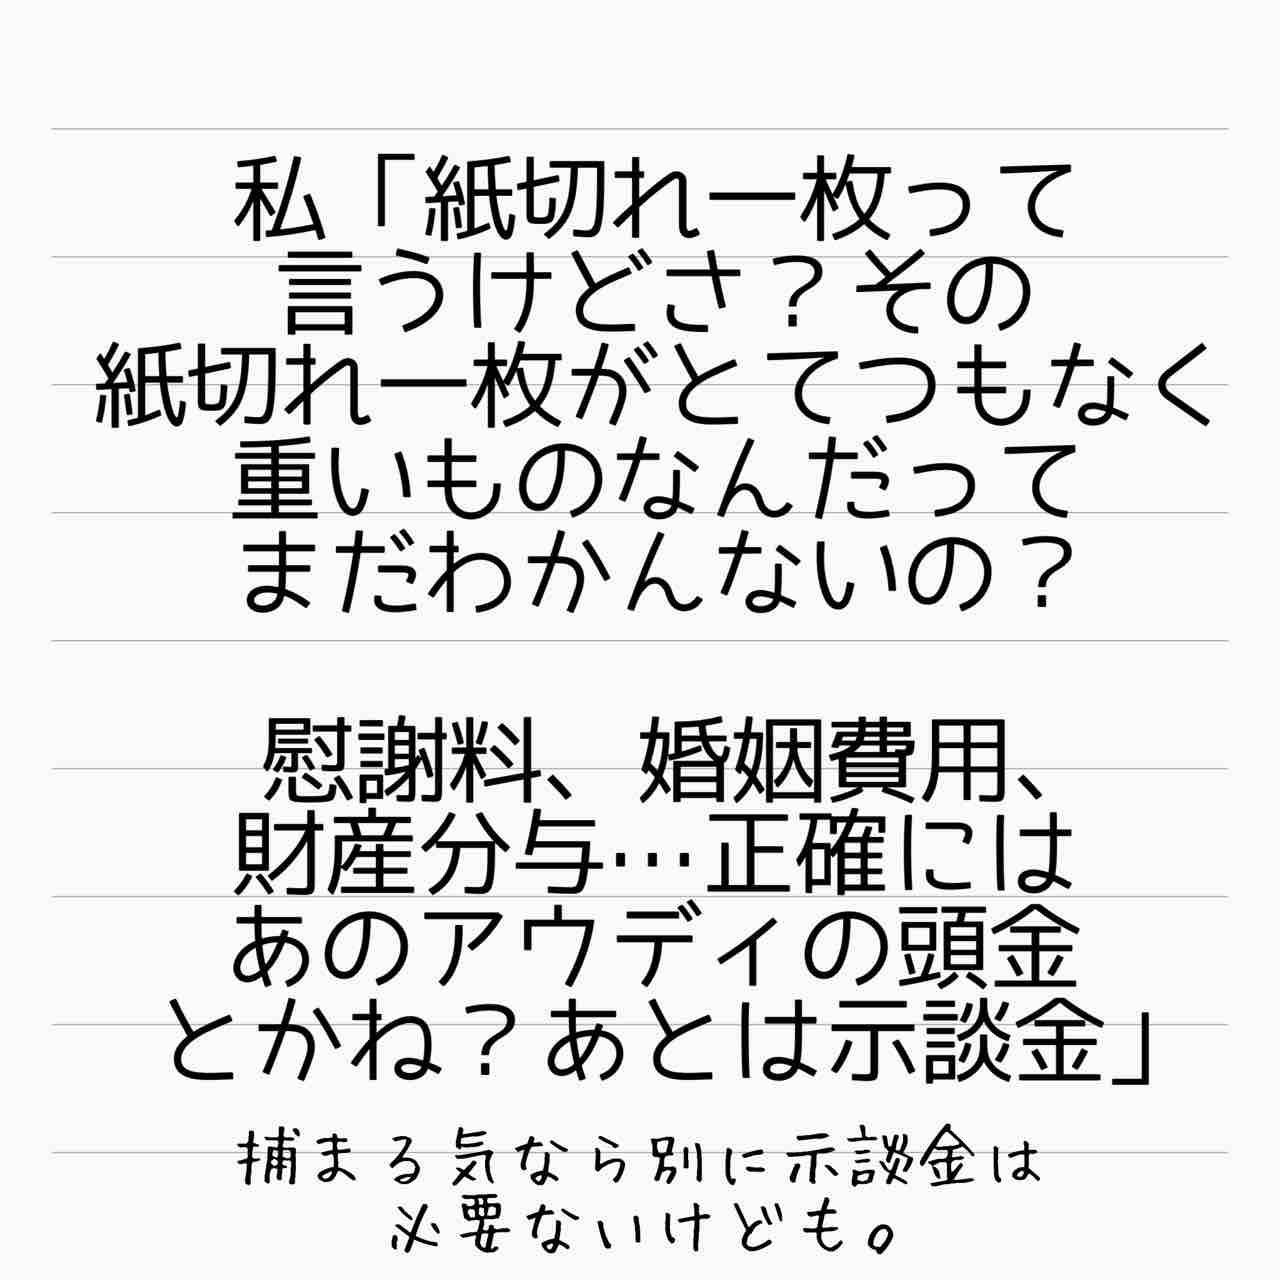 私「紙切れ一枚って
言うけどさ？その
紙切れ一枚がとてつもなく
重いものなんだって
まだわかんないの？
慰謝料、婚姻費用、
財産分与…正確には
あのアウディの頭金
とかね？あとは示談金」
捕まる気なら別に示談金は
必要ないけども。